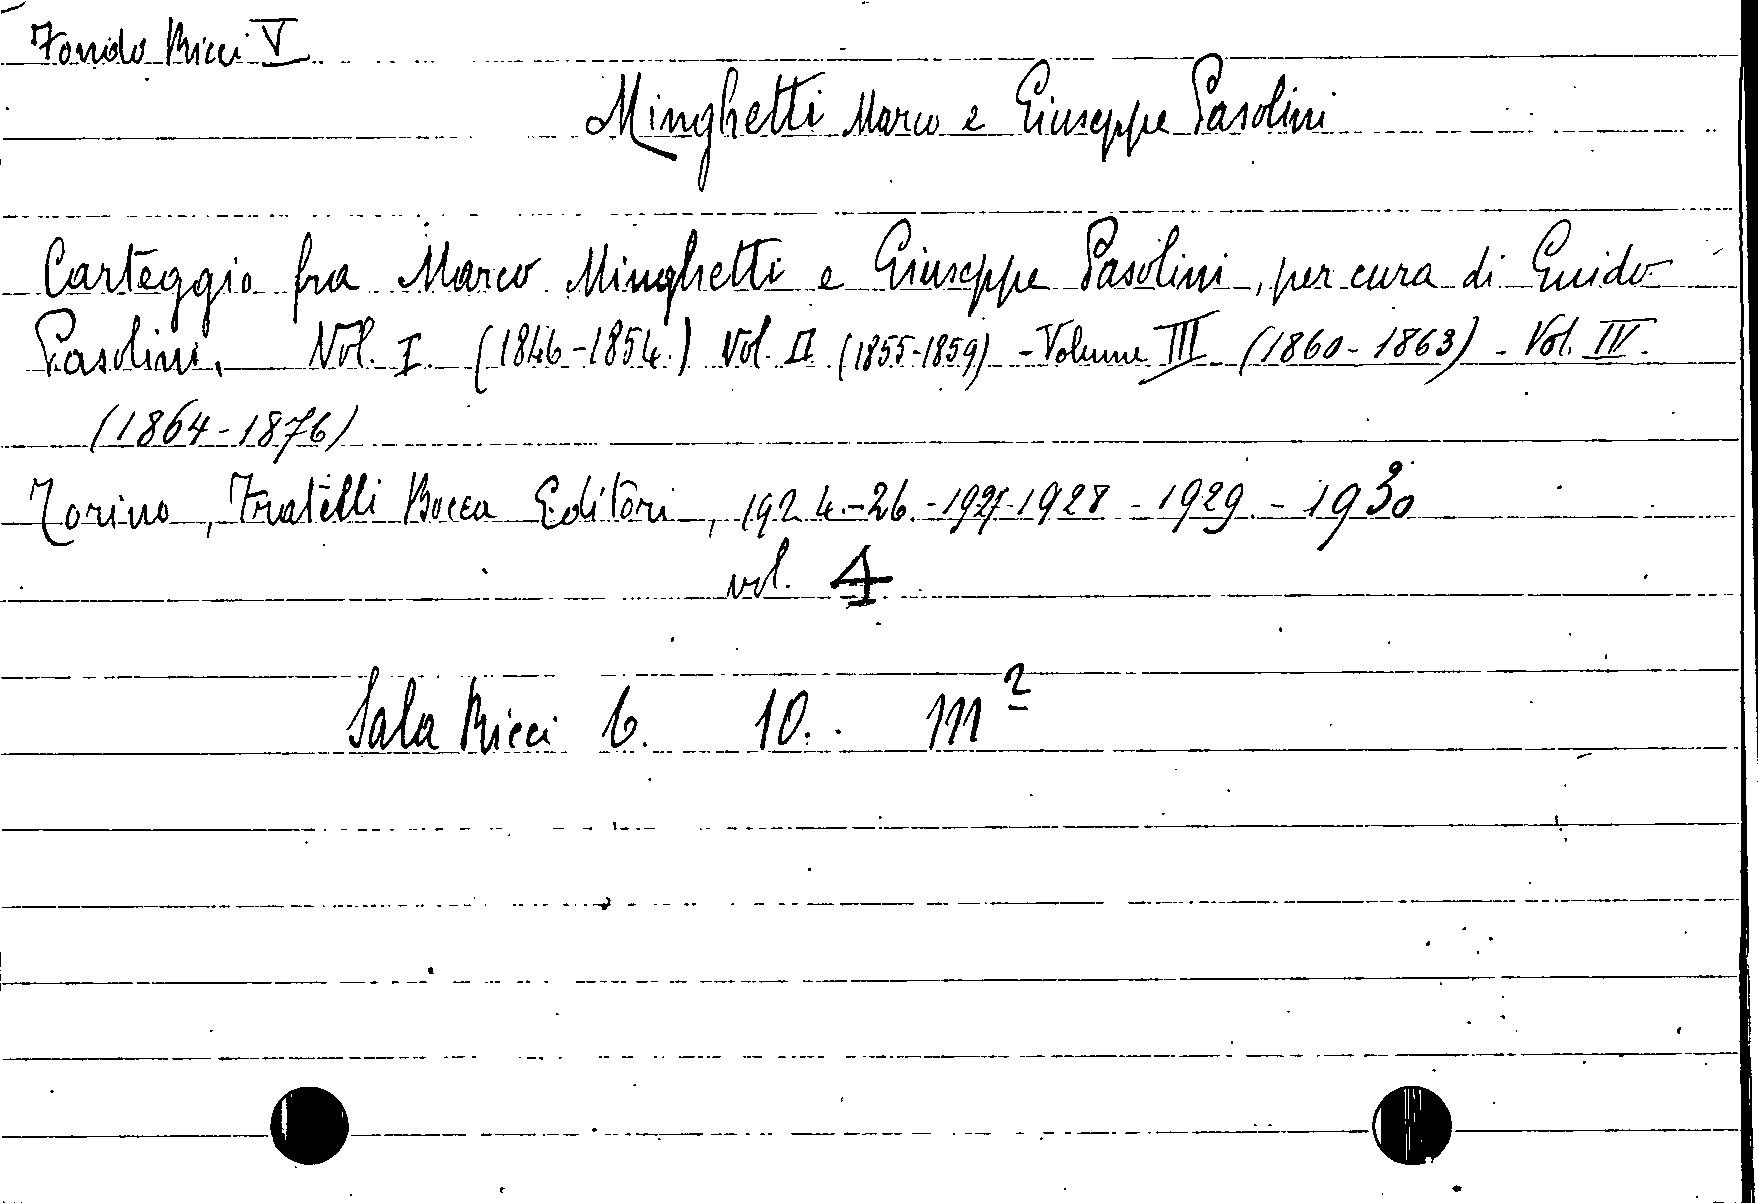 Fondo Ricci V
Minghetti Marco e Giuseppe Pasolini
Carteggio fra Marco Minghetti e Giuseppe Pasolini, per cura di Guido
Pasolini. Vol. I. (1846-1854.) Vol. II (1855-1859) - Volume III (1860-1863) - Vol. IV.
(1864-1876)
Torino, Fratelli Bocca Editori, 1924.-26.-1927-1928 - 1929. - 1930
vol. 4
Sala Ricci 6. 10. m²